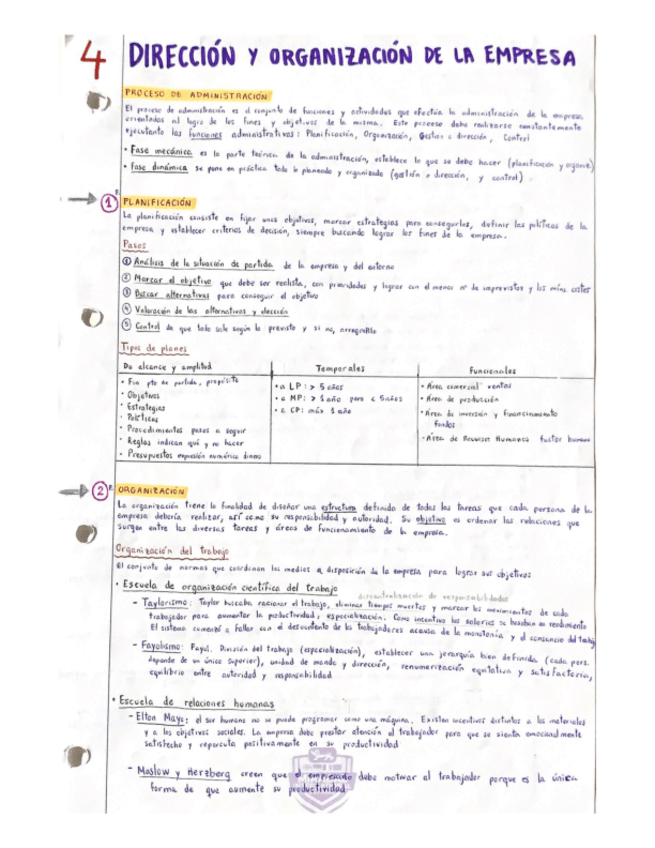 4 DIRECCIÓN Y ORGANIZACIÓN DE LA EMPRESA
PROCESO DE ADMINISTRACIÓN
El proceso de administración es el conjunto de funciones y actividades que efectúa la administración de la empresa
orientadas al logro de los fines y objetivos de la misma. Este proceso debe realizarse constantemente
ejecutando las funciones administrativas: Planificación, Organización, Gestión o dirección, Control
• Fase mecánica es la parte teórica de la administración, establece lo que se debe hacer (planificación y organiz)
• Fase dinámica se pone en práctica todo lo planeado y organizado (gestión o dirección, y control).
1 PLANIFICACIÓN
La planificación consiste en fijar unos objetivos, marcar estrategias para conseguirlos, definir las políticas de la
empresa y establecer criterios de decisión, siempre buscando lograr los fines de la empresa.
Pasos
① Análisis de la situación de partida de la empresa y del entorno
② Marcar el objetivo que debe ser realista, con prioridades y lograr con el menor nº de imprevistos y los míns. costes
③ Buscar alternativas para conseguir el objetivo
④ Valoración de las alternativas y elección
⑤ Control de que todo sale según lo previsto y si no, arreglarlo
Tipos de planes
De alcance y amplitud Temporales Funcionales
• Fin pto de partida, propósito
• Objetivos
• Estrategias
• Políticas
• Procedimientos pasos a seguir
• Reglas indican qué y no hacer
• Presupuestos expresión numérica dinero
• a LP: > 5 años
• a MP: > 1 año pero < 5 años
• a CP: máx 1 año
• Área comercial ventas
• Área de producción
• Área de inversión y financiamiento
fondos
• Área de Recursos Humanos factor humano
2 ORGANIZACIÓN
La organización tiene la finalidad de diseñar una estructura definida de todas las tareas que cada persona de la
empresa debería realizar, así como su responsabilidad y autoridad. Su objetivo es ordenar las relaciones que
surgen entre las diversas tareas y áreas de funcionamiento de la empresa.
Organización del trabajo
El conjunto de normas que coordinan los medios a disposición de la empresa para lograr sus objetivos
• Escuela de organización científica del trabajo
descentralización de responsabilidades
- Taylorismo: Taylor buscaba racionar el trabajo, eliminar tiempos muertos y marcar los movimientos de cada
trabajador para aumentar la productividad, especialización. Como incentivo los salarios se basaban en rendimiento
El sistema comenzó a fallar con el descontento de los trabajadores a causa de la monotonía y el cansancio del trabajo
- Fayolismo: Fayol. División del trabajo (especialización), establecer una jerarquía bien definida (cada pers.
depende de un único superior), unidad de mando y dirección, renumerización equitativa y satisfactoria,
equilibrio entre autoridad y responsabilidad
• Escuela de relaciones humanas
- Elton Mayo: el ser humano no se puede programar como una máquina. Existen incentivos distintos a los materiales
y a los objetivos sociales. La empresa debe prestar atención al trabajador para que se sienta emocionalmente
satisfecho y repercuta positivamente en su productividad
- Maslow y Herzberg creen que el empresario debe motivar al trabajador porque es la única
forma de que aumente su productividad